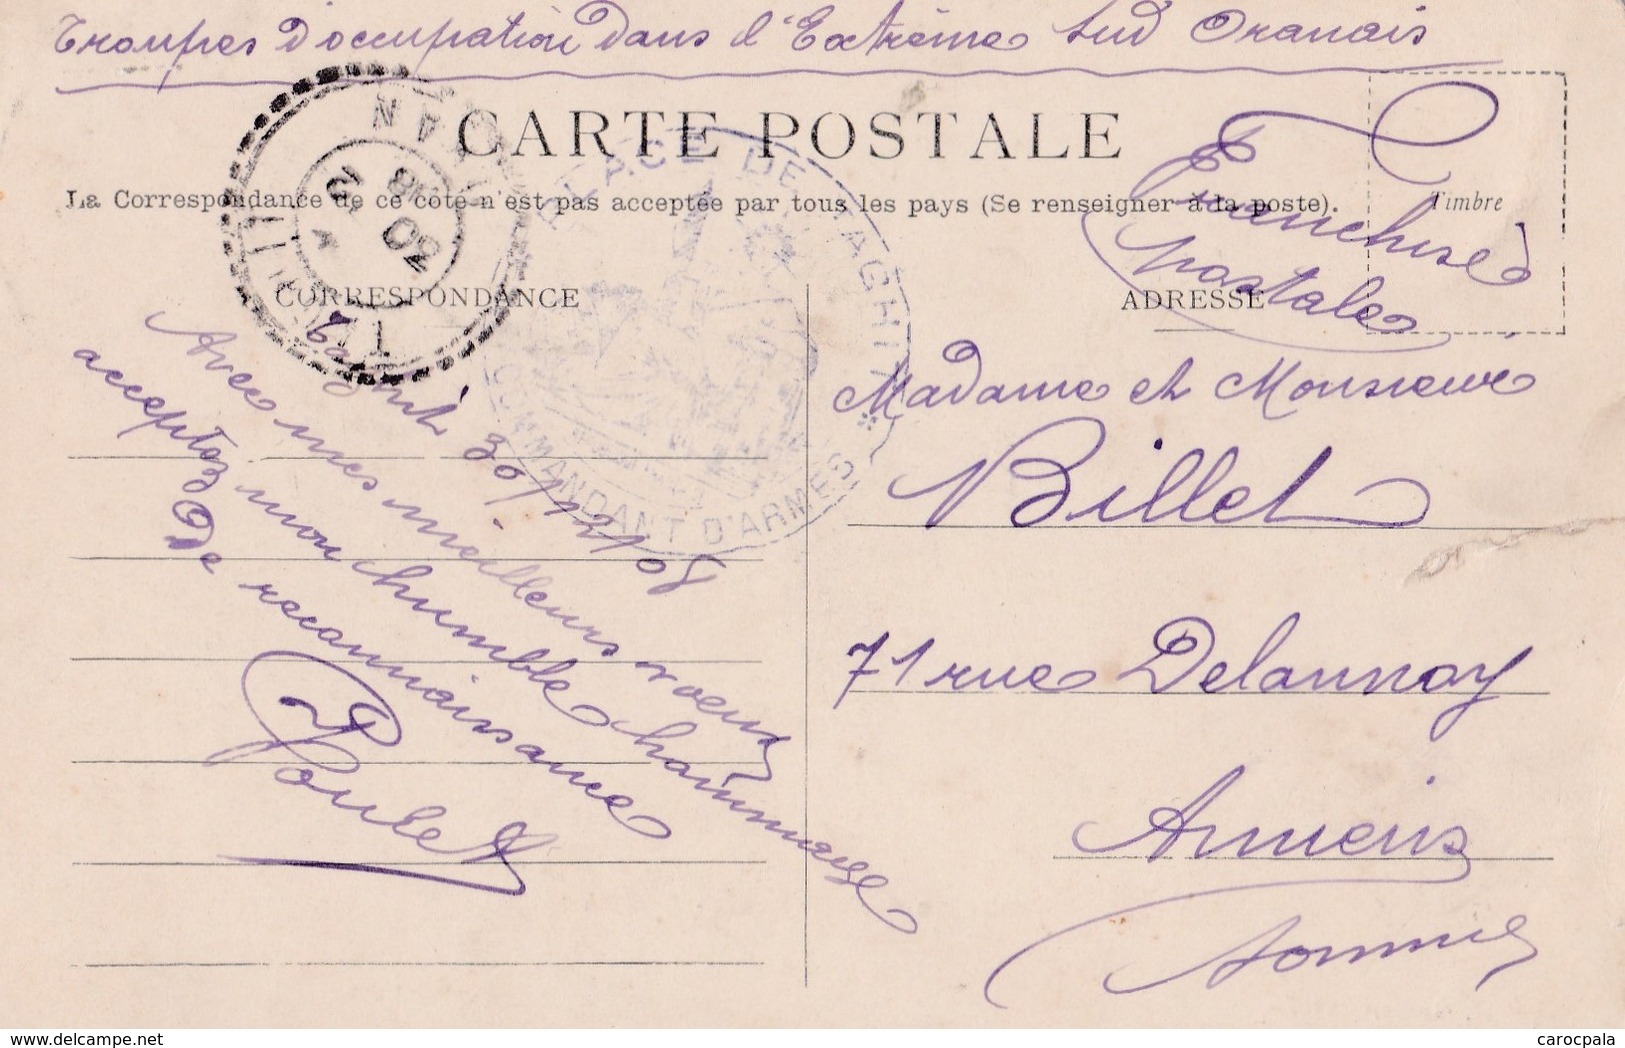 Troupes D'occupation Dans l'Extrême Sud Oranais
CARTE POSTALE
La Correspondance de ce côté n'est pas acceptée par tous les pays (Se renseigner à la poste).
Timbre
Franchise
postale
PLACE DE TAGHIT
COMMANDANT D'ARMES
CORRESPONDANCE
ADRESSE
Taghit 30/12/08
Avec mes meilleurs vœux
acceptez mon humble hommage
De reconnaissance
Poulet
Madame et Monsieur
Billet
71 rue Delannoy
Amiens
Somme
carocpala